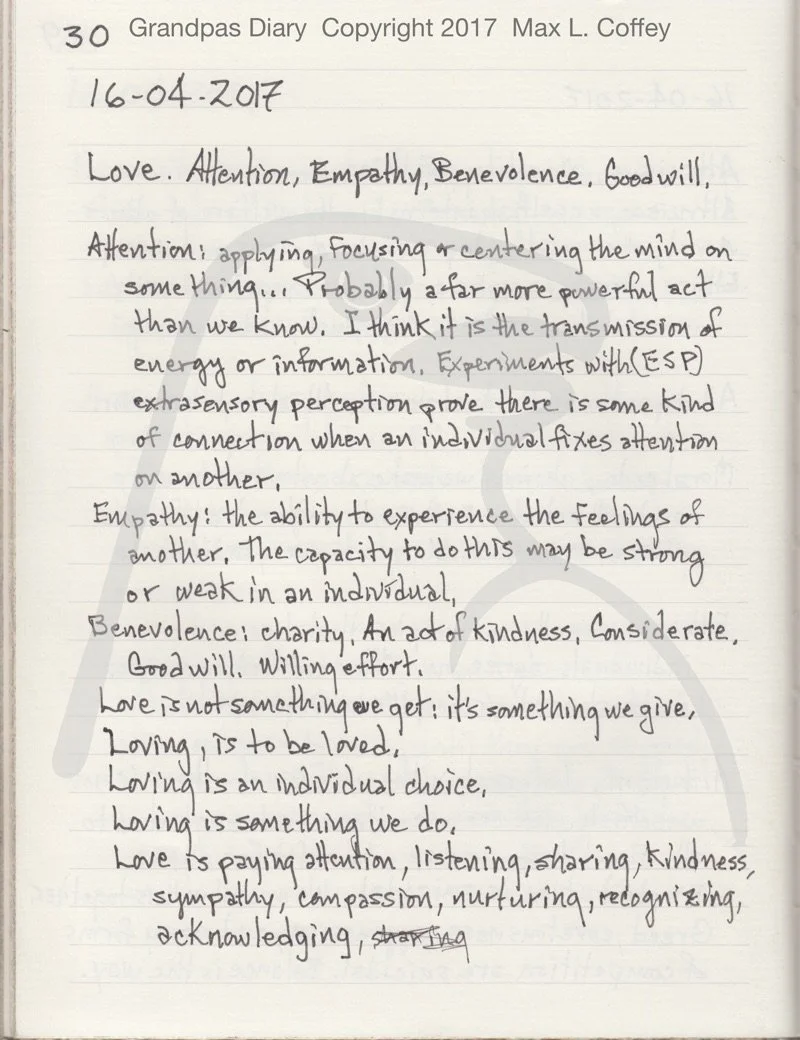 30 Grandpas Diary Copyright 2017 Max L. Coffey
16-04-2017
Love. Attention, Empathy, Benevolence. Goodwill.
Attention: applying, focusing or centering the mind on
something... Probably a far more powerful act
than we know. I think it is the transmission of
energy or information. Experiments with (ESP)
extrasensory perception prove there is some kind
of connection when an individual fixes attention
on another.
Empathy: the ability to experience the feelings of
another. The capacity to do this may be strong
or weak in an individual.
Benevolence: charity. An act of kindness. Considerate.
Goodwill. Willing effort.
Love is not something we get: it's something we give.
Loving, is to be loved.
Loving is an individual choice.
Loving is something we do.
Love is paying attention, listening, sharing, kindness,
sympathy, compassion, nurturing, recognizing,
acknowledging, sharing